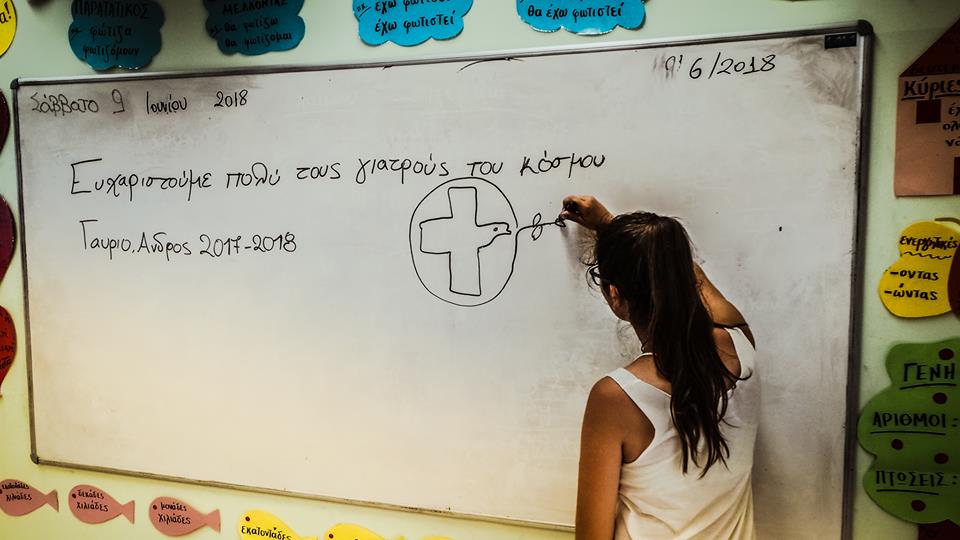 α!
ΠΑΡΑΤΑΤΙΚΟΣ
φώτιζα
φωτιζόμουν
ΜΕΛΛΟΝΤΑΣ
θα φωτίζω
θα φωτίζομαι
έχω φωτίσει
έχω φωτιστεί
θα έχω φωτιστεί
Σάββατο 9 Ιουνίου 2018
9/6/2018
Ευχαριστούμε πολύ τους γιατρούς του κόσμου
Γαυριο, Ανδρος 2017-2018
Κύριες
ενεργητικές
-οντας
-ώντας
ΓΕΝΗ
ΑΡΙΘΜΟΙ:
ΠΤΩΣΕΙΣ:
χιλιάδες
δεκάδες
χιλιάδες
μονάδες
χιλιάδες
εκατοντάδες